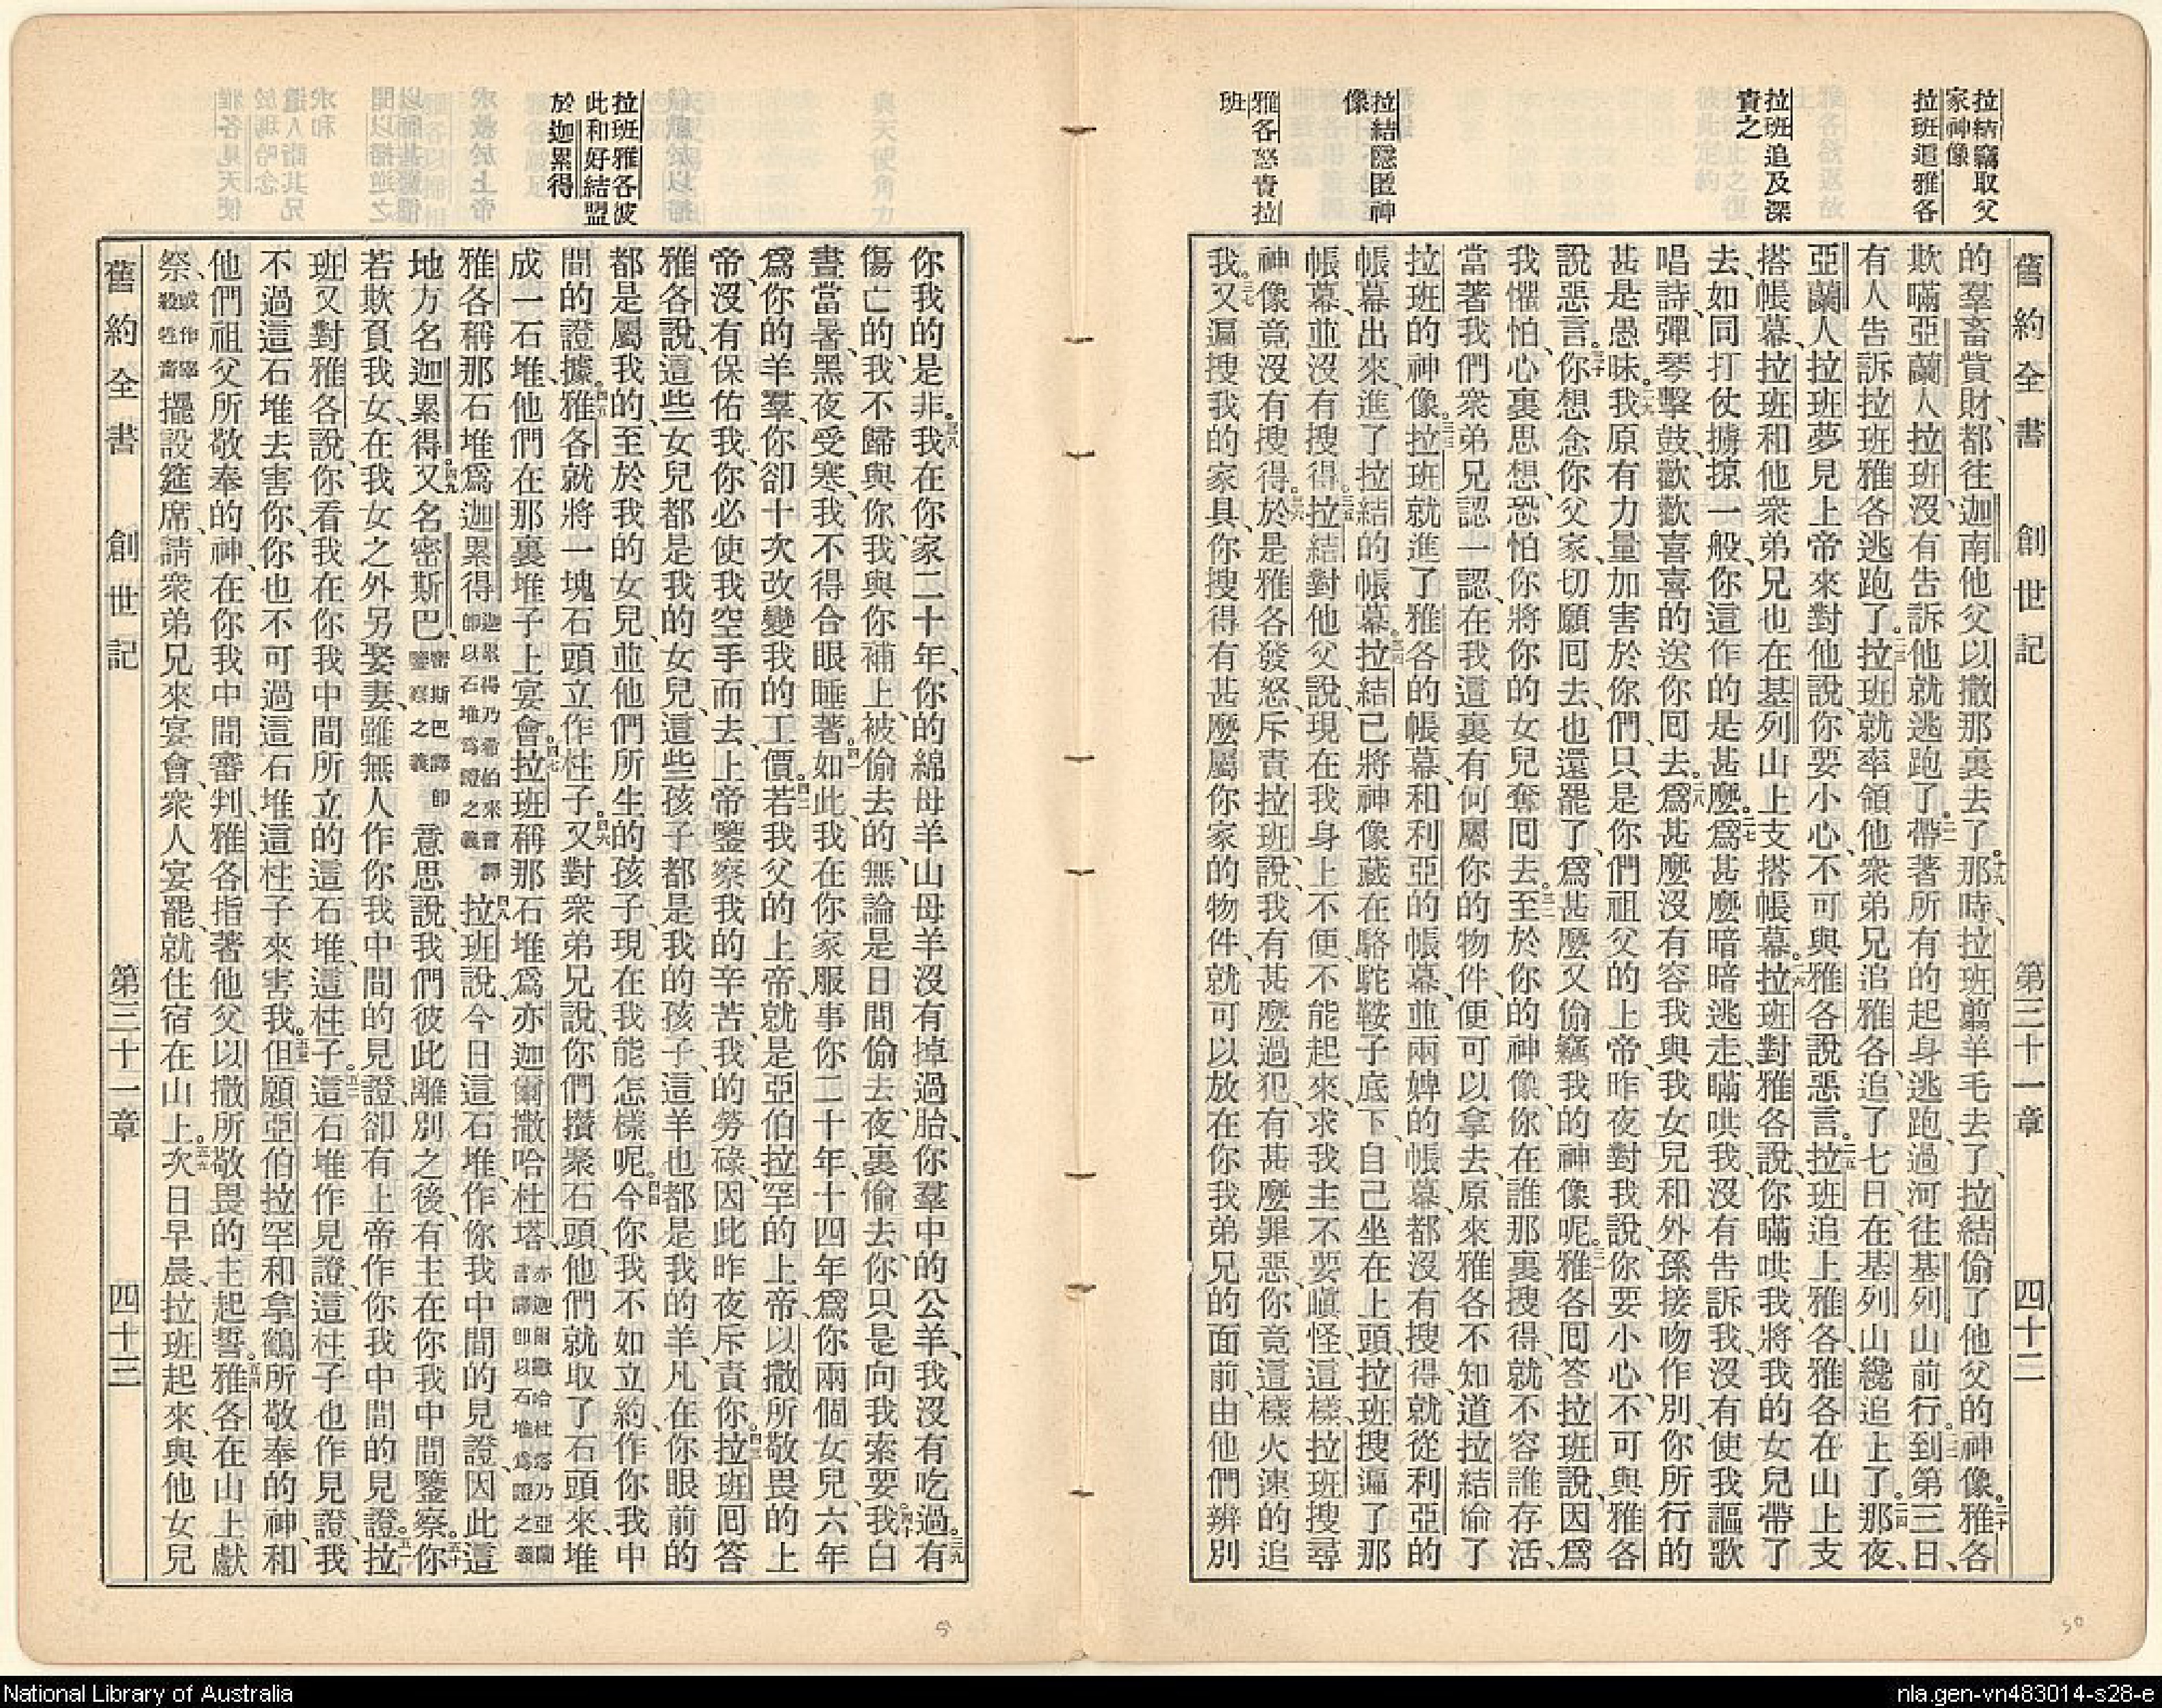 舊約全書 創世記 第三十一章 四十二
拉結竊取父
家神像
拉班追雅各
拉班追及深
責之
拉結隱匿神
像
雅各怒責拉
班
的羣畜貲財、都往迦南他父以撒那裏去了。十九那時、拉班翦羊毛去了、拉結偷了他父的神像。二十雅各
欺瞞亞蘭人拉班、沒有告訴他就逃跑了。二一帶著所有的起身逃跑、過河往基列山前行。二二到第三日、
有人告訴拉班雅各逃跑了。二三拉班就率領他衆弟兄追雅各、追了七日、在基列山纔追上了。二四那夜、
亞蘭人拉班夢見上帝來對他說、你要小心、不可與雅各說惡言。二五拉班追上雅各、雅各在山上支
搭帳幕、拉班和他衆弟兄也在基列山上支搭帳幕。二六拉班對雅各說、你瞞哄我、將我的女兒帶了
去、如同打仗擄掠一般、你這作的是甚麼。二七爲甚麼暗暗逃走、瞞哄我、沒有告訴我、沒有使我謳歌
唱詩、彈琴擊鼓、歡歡喜喜的送你囘去。二八爲甚麼沒有容我與我女兒和外孫接吻作別、你所行的
甚是愚昧。二九我原有力量加害於你們、只是你們祖父的上帝、昨夜對我說、你要小心、不可與雅各
說惡言。三十你想念你父家、切願囘去、也還罷了、爲甚麼又偷竊我的神像呢。三一雅各囘答拉班說、因爲
我懼怕、心裏思想、恐怕你將你的女兒奪囘去。三二至於你的神像、你在誰那裏搜得、就不容誰存活、
當著我們衆弟兄認一認、在我這裏有何屬你的物件、便可以拿去、原來雅各不知道拉結偷了
拉班的神像。三三拉班就進了雅各的帳幕、和利亞的帳幕、並兩婢的帳幕、都沒有搜得、就從利亞的
帳幕出來、進了拉結的帳幕。三四拉結已將神像藏在駱駝鞍子底下、自己坐在上頭、拉班搜遍了那
帳幕、並沒有搜得。三五拉結對他父說、現在我身上不便、不能起來、求我主不要嗔怪、這樣、拉班搜尋
神像竟沒有搜得。三六於是雅各發怒、斥責拉班、說、我有甚麼過犯、有甚麼罪惡、你竟這樣火速的追
我。三七又遍搜我的家具、你搜得有甚麼屬你家的物件、就可以放在你我弟兄的面前、由他們辨別
拉班雅各彼
此和好結盟
於迦累得
你我的是非。三八我在你家二十年、你的綿母羊山母羊沒有掉過胎、你羣中的公羊、我沒有吃過。三九有
傷亡的、我不歸與你、我與你補上、被偷去的、無論是日間偷去、夜裏偷去、你只是向我索要。四十我白
晝當暑、黑夜受寒、我不得合眼睡著。四一如此、我在你家服事你二十年、十四年爲你兩個女兒、六年
爲你的羊羣、你卻十次改變我的工價。四二若我父的上帝、就是亞伯拉罕的上帝、以撒所敬畏的上
帝、沒有保佑我、你必使我空手而去、上帝鑒察我的辛苦、我的勞碌、因此昨夜斥責你。四三拉班囘答
雅各說、這些女兒都是我的女兒、這些孩子都是我的孩子、這羊也都是我的羊、凡在你眼前的
都是屬我的、至於我的女兒、並他們所生的孩子、現在我能怎樣呢。四四今你我不如立約、作你我中
間的證據。四五雅各就將一塊石頭立作柱子。四六又對衆弟兄說、你們攢聚石頭、他們就取了石頭來、堆
成一石堆、他們在那裏堆子上宴會。四七拉班稱那石堆爲亦迦爾撒哈杜塔、亦迦爾撒哈杜塔乃亞蘭言譯卽以石堆爲證之義
雅各稱那石堆爲迦累得、迦累得乃希伯來言譯卽以石堆爲證之義 四八拉班說、今日這石堆、作你我中間的見證、因此這
地方名迦累得。四九又名密斯巴、密斯巴譯卽鑒察之義 意思說、我們彼此離別之後、有主在你我中間鑒察。五十你
若欺負我女、在我女之外另娶妻、雖無人作你我中間的見證、卻有上帝作你我中間的見證。五一拉
班又對雅各說、你看我在你我中間所立的這石堆、這柱子。五二這石堆作見證、這柱子也作見證、我
不過這石堆去害你、你也不可過這石堆這柱子來害我。五三但願亞伯拉罕和拿鶴所敬奉的神、和
他們祖父所敬奉的神、在你我中間審判、雅各指著他父以撒所敬畏的主起誓。五四雅各在山上獻
祭、或作宰殺牲畜擺設筵席、請衆弟兄來宴會、衆人宴罷、就住宿在山上。五五次日早晨、拉班起來、與他女兒
舊約全書 創世記 第三十一章 四十三
50
National Library of Australia
nla.gen-vn483014-s28-e